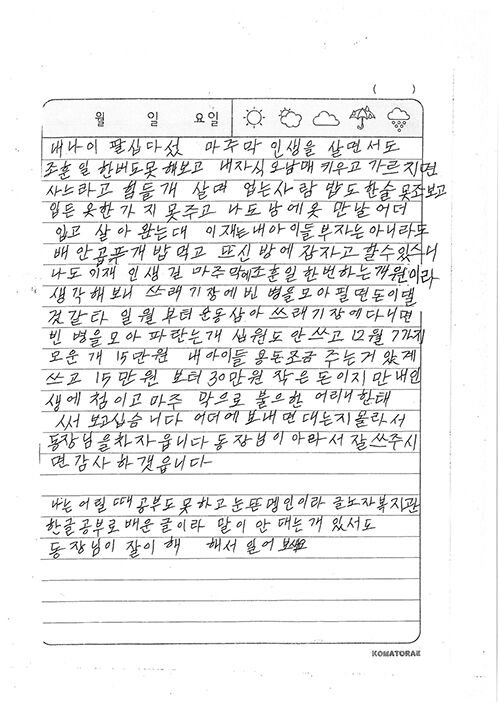 ( )
월 일 요일
내나이 팔십다섰 마주막 인생을 살면서도
조훈일 한버도못해보고 내자식 오남매 키우고 가르지면
사느라고 힘들개 살며 업는사람 밥도한술 못조보고
입든 옷한가지 못주고 나도 남에옷 만날어더
입고 살아 완는대 이재는내아이들부자는아니라도
배안곱푸개밥먹고 뜨신방에 잠자고 할수있수니
나도이재 인생길 마주막에조훈일한번하는개원이라
생각해보니 쓰래기장에빈 병을모아필면돈이댈
것같타 일월부터운동삼아쓰래기장에다니면
빈 병을모아 파란는개 십원도 안쓰고 12월 7가지
모운개 15만원 내아이들 용돈조금 주는거 있게
쓰고 15만원 보터30만원 작은돈이지만내인
생에 첨이고마주 막으로 불으한 어리니한태
써보고십습니다 어더에보내면대는지몰라서
동장님을차자읍니다동장님이아라서잘쓰주시
면감사하겟읍니다
나는어릴때공부도못하고눈뜬멩인이라 글노자복지관
한글공부로배운글이라 말이안대는개있서도
동장님이잘이해 해서일어보세요
KOMATORAE